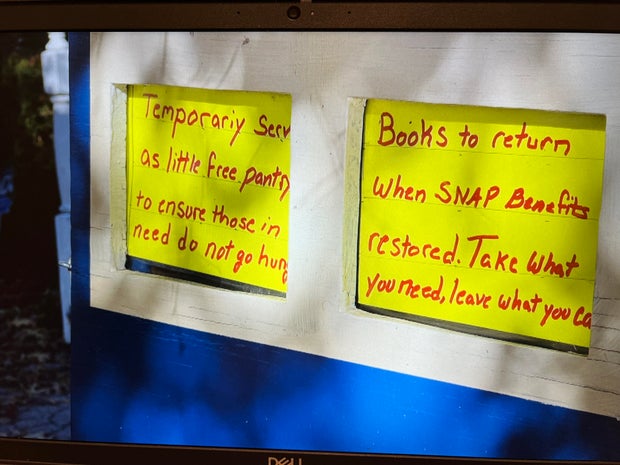 Temporariy Serv
as little free pantry
to ensure those in
need do not go hung
Books to return
When SNAP Benefits
restored. Take What
you need, leave what you ca
DELL